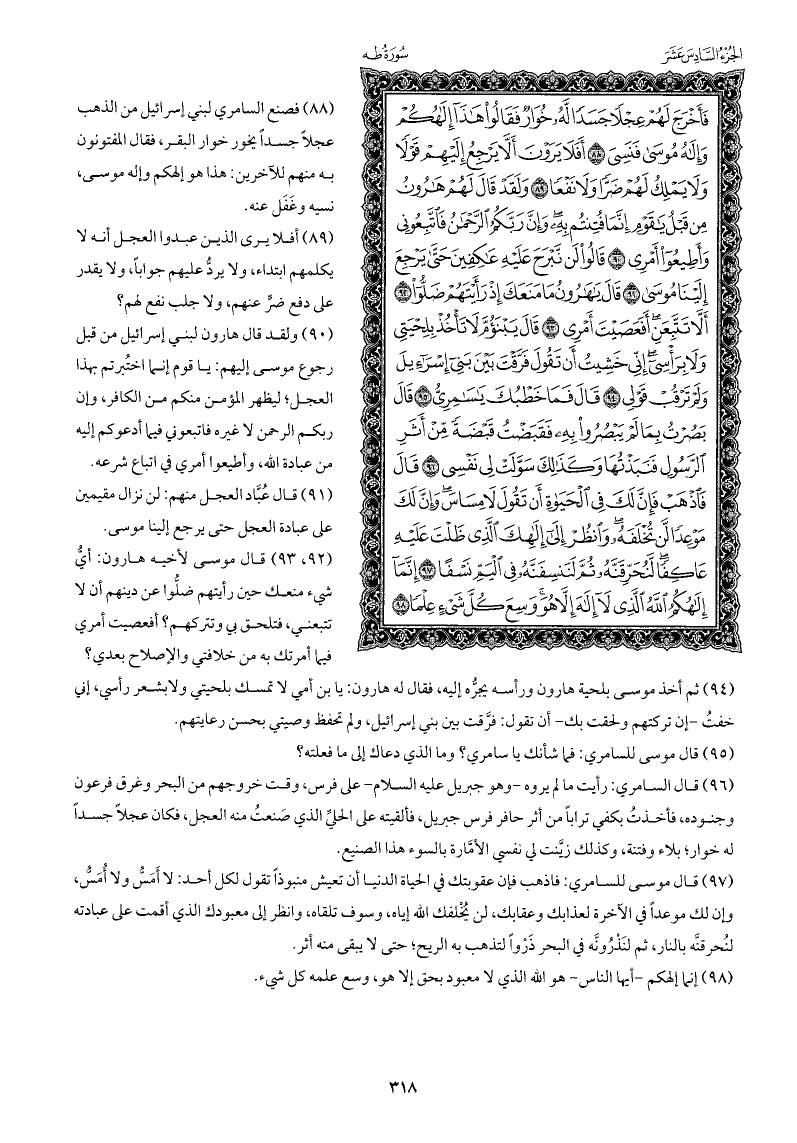 الجزء السادس عشر
سورة طه
فَأَخْرَجَ لَهُمْ عِجْلًا جَسَدًا لَّهُۥ خُوَارٌ فَقَالُوا۟ هَٰذَآ إِلَٰهُكُمْ
وَإِلَٰهُ مُوسَىٰ فَنَسِىَ ٨٨ أَفَلَا يَرَوْنَ أَلَّا يَرْجِعُ إِلَيْهِمْ قَوْلًا
وَلَا يَمْلِكُ لَهُمْ ضَرًّا وَلَا نَفْعًا ٨٩ وَلَقَدْ قَالَ لَهُمْ هَٰرُونُ
مِن قَبْلُ يَٰقَوْمِ إِنَّمَا فُتِنتُم بِهِۦ وَإِنَّ رَبَّكُمُ ٱلرَّحْمَٰنُ فَٱتَّبِعُونِى
وَأَطِيعُوٓا۟ أَمْرِى ٩٠ قَالُوا۟ لَن نَّبْرَحَ عَلَيْهِ عَٰكِفِينَ حَتَّىٰ يَرْجِعَ
إِلَيْنَا مُوسَىٰ ٩١ قَالَ يَٰهَٰرُونُ مَا مَنَعَكَ إِذْ رَأَيْتَهُمْ ضَلُّوٓا۟ ٩٢
أَلَّا تَتَّبِعَنِ أَفَعَصَيْتَ أَمْرِى ٩٣ قَالَ يَبْنَؤُمَّ لَا تَأْخُذْ بِلِحْيَتِى
وَلَا بِرَأْسِىٓ إِنِّى خَشِيتُ أَن تَقُولَ فَرَّقْتَ بَيْنَ بَنِىٓ إِسْرَٰٓءِيلَ
وَلَمْ تَرْقُبْ قَوْلِى ٩٤ قَالَ فَمَا خَطْبُكَ يَٰسَٰمِرِىُّ ٩٥ قَالَ
بَصُرْتُ بِمَا لَمْ يَبْصُرُوا۟ بِهِۦ فَقَبَضْتُ قَبْضَةً مِّنْ أَثَرِ
ٱلرَّسُولِ فَنَبَذْتُهَا وَكَذَٰلِكَ سَوَّلَتْ لِى نَفْسِى ٩٦ قَالَ
فَٱذْهَبْ فَإِنَّ لَكَ فِى ٱلْحَيَوٰةِ أَن تَقُولَ لَا مِسَاسَ وَإِنَّ لَكَ
مَوْعِدًا لَّن تُخْلَفَهُۥ وَٱنظُرْ إِلَىٰٓ إِلَٰهِكَ ٱلَّذِى ظَلْتَ عَلَيْهِ
عَاكِفًا لَّنُحَرِّقَنَّهُۥ ثُمَّ لَنَنسِفَنَّهُۥ فِى ٱلْيَمِّ نَسْفًا ٩٧ إِنَّمَآ
إِلَٰهُكُمُ ٱللَّهُ ٱلَّذِى لَآ إِلَٰهَ إِلَّا هُوَ وَسِعَ كُلَّ شَىْءٍ عِلْمًا ٩٨
(٨٨) فصنع السامري لبني إسرائيل من الذهب
عجلاً جسداً يخور خوار البقر، فقال المفتونون
به منهم للآخرين: هذا هو إلهكم وإله موسى،
نسيه وغَفَل عنه.
(٨٩) أفلا يرى الذين عبدوا العجل أنه لا
يكلمهم ابتداء، ولا يردُّ عليهم جواباً، ولا يقدر
على دفع ضرٍّ عنهم، ولا جلب نفع لهم؟
(٩٠) ولقد قال هارون لبني إسرائيل من قبل
رجوع موسى إليهم: يا قوم إنما اختُبرتم بهذا
العجل؛ ليظهر المؤمن منكم من الكافر، وإن
ربكم الرحمن لا غيره فاتبعوني فيما أدعوكم إليه
من عبادة الله، وأطيعوا أمري في اتباع شرعه.
(٩١) قال عُبَّاد العجل منهم: لن نزال مقيمين
على عبادة العجل حتى يرجع إلينا موسى.
(٩٢، ٩٣) قال موسى لأخيه هارون: أيُّ
شيء منعك حين رأيتهم ضلُّوا عن دينهم أن لا
تتبعني، فتلحق بي وتتركهم؟ أفعصيت أمري
فيما أمرتك به من خلافتي والإصلاح بعدي؟
(٩٤) ثم أخذ موسى بلحية هارون ورأسه يجرُّه إليه، فقال له هارون: يا بن أمي لا تمسك بلحيتي ولابشعر رأسي، إني
خفتُ -إن تركتهم ولحقت بك- أن تقول: فرَّقت بين بني إسرائيل، ولم تحفظ وصيتي بحسن رعايتهم.
(٩٥) قال موسى للسامري: فما شأنك يا سامري؟ وما الذي دعاك إلى ما فعلته؟
(٩٦) قال السامري: رأيت ما لم يروه -وهو جبريل عليه السلام- على فرس، وقت خروجهم من البحر وغرق فرعون
وجنوده، فأخذتُ بكفي تراباً من أثر حافر فرس جبريل، فألقيته على الحليِّ الذي صَنعتُ منه العجل، فكان عجلاً جسداً
له خوار؛ بلاء وفتنة، وكذلك زيَّنت لي نفسي الأمَّارة بالسوء هذا الصنيع.
(٩٧) قال موسى للسامري: فاذهب فإن عقوبتك في الحياة الدنيا أن تعيش منبوذاً تقول لكل أحد: لا أَمَسُّ ولا أُمَسُّ،
وإن لك موعداً في الآخرة لعذابك وعقابك، لن يُخْلفك الله إياه، وسوف تلقاه، وانظر إلى معبودك الذي أقمت على عبادته
لنُحرقنَّه بالنار، ثم لنَذْرُونَّه في البحر ذَرْواً لتذهب به الريح؛ حتى لا يبقى منه أثر.
(٩٨) إنما إلهكم -أيها الناس- هو الله الذي لا معبود بحق إلا هو، وسع علمه كل شيء.
٣١٨